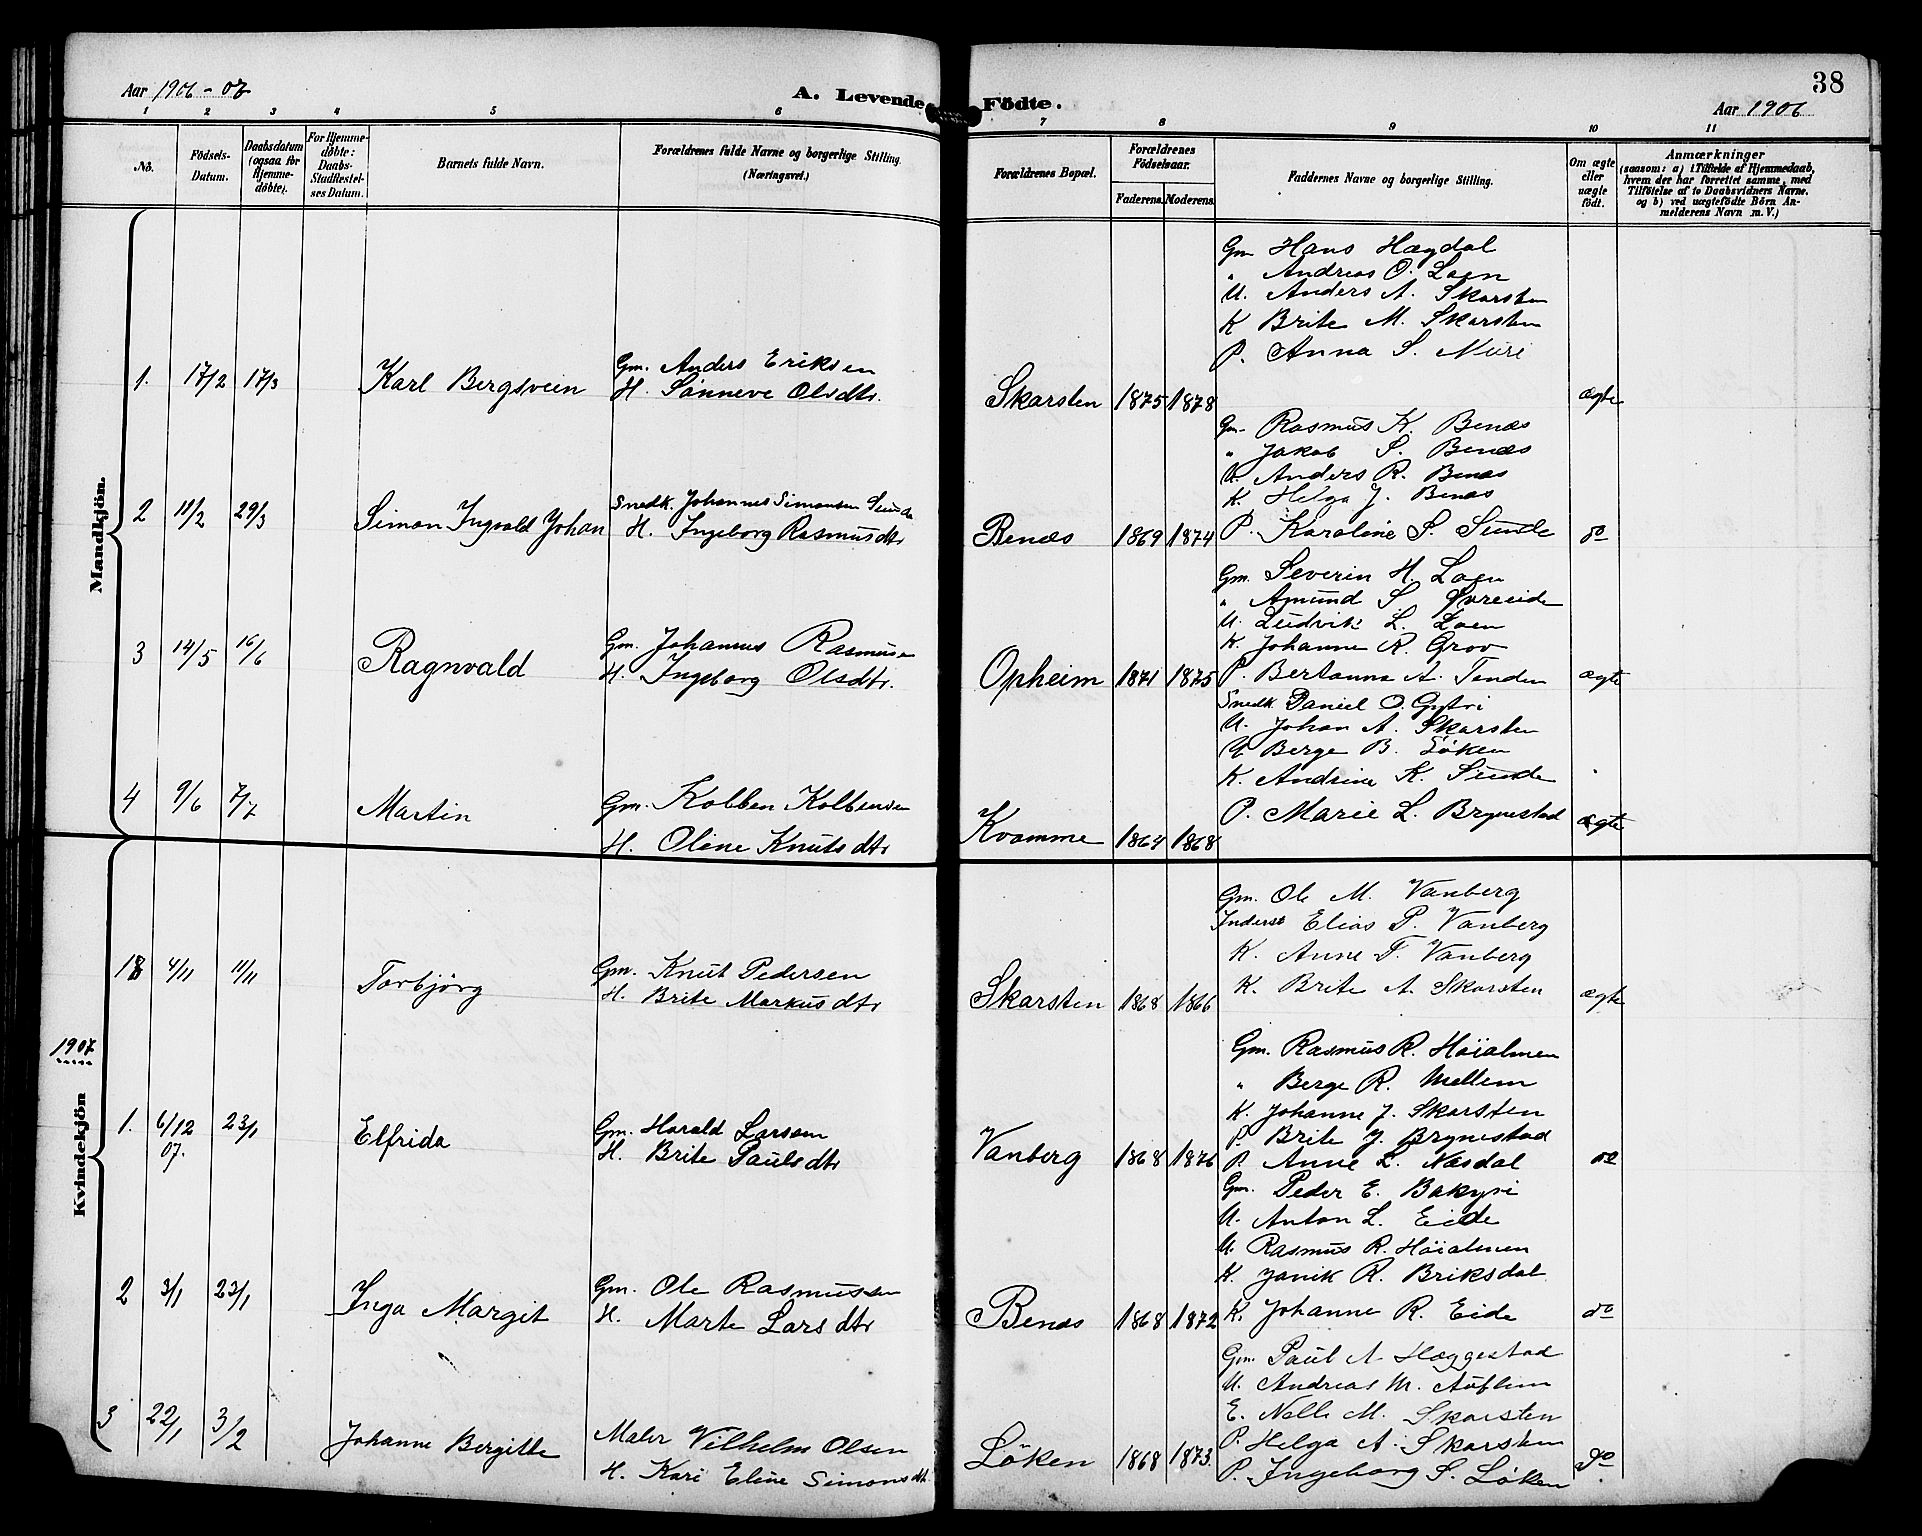 38
Aar 1906 - 07
A. Levende Födte.
Aar 1906
1 2 3 4 5 6 7 8 9 10 11
No.
Födsels-Datum.
Daabsdatum (ogsaa for Hjemme-döbte).
For Hjemme-döbte: Daabs-Stadfæstel-ses Datum.
Barnets fulde Navn.
Forældrenes fulde Navne og borgerlige Stilling. (Næringsvei.)
Forældrenes Bopæl.
Forældrenes Födselsaar.
Faderens. Moderens.
Faddernes Navne og borgerlige Stilling.
Om ægte eller uægte födt.
Anmærkninger
(saasom: a) i Tilfælde af Hjemmedaab,
hvem der har forrettet samme, med
Tilföielse af to Daabsvidners Navne,
og b) ved uægtefödte Börn An-
melderens Navn m. V.)
Mandkjön.
Gm Hans Hægdal
" Andreas O. Loen
U. Anders A. Skarsten
K Brite M. Skarsten
P. Anna S. Muri
1. 17/2 17/3 Karl Bergsvein
Gm. Anders Eriksen
H. Sanneve Olsdtr.
Skarsten 1875 1878 ægte
Gm. Rasmus K. Benæs
" Jakob S. Benæs
U. Anders R. Benæs
K. Helga J. Benæs
P. Karoline S. Sunde
2 11/2 29/3 Simon Ingvald Johan
Snedk. Johannes Simonsen Sunde
H. Ingeborg Rasmusdtr
Benæs 1869 1874 do
Gm. Severin H. Loen
" Amund S. Øvreeide
U. Ludvik L. Loen
K. Johanne R. Grov
P. Bertanna A. Tenden
3 14/5 16/6 Ragnvald
Gm. Johannes Rasmusen
H. Ingeborg Olsdtr.
Opheim 1871 1875 ægte
Snedk Daniel O. Gytri
U. Johan A. Skarsten
U Berge B. Löken
K. Andrine K. Sunde
P. Marie L. Brynestad
4 9/6 7/7 Martin
Gm. Kolben Kolbensen
H. Oline Knutsdtr
Kvamme 1864 1868 ægte
Kvindekjön
Gm. Ole M. Vanberg
Inderst Elias P. Vanberg
K. Anne T. Vanberg
K. Brite A. Skarsten
18 4/11 11/11 Torbjörg
Gm. Knut Pedersen
H. Brite Markusdtr
Skarsten 1868 1866 ægte
1907
Gm. Rasmus R. Höialmen
" Berge R. Mellem
K. Johanne J. Skarsten
P. Brite J. Brynestad
P. Anne L. Næsdal
1. 6/12 07. 23/1 Elfrida
Gm. Harald Larsen
H. Brite Paulsdtr
Vanberg 1868 1876 do
Gm. Peder E. Bakyri
U. Anton L. Eide
U. Rasmus R. Höialmen
K. Janik R. Briksdal
K. Johanne R. Eide
2 3/1 23/1 Inga Margit
Gm. Ole Rasmussen
H. Marte Larsdtr
Benæs 1868 1872 do
Gm. Paul A Hæggestad
U. Andreas M. Auflem
E. Nelle M. Skarsten
P. Helga A. Skarsten
P. Ingeborg S. Löken
3 22/1 3/2 Johanne Bergitte
Maler Vilhelm Olsen
H. Kari Eline Simonsdtr.
Löken 1868 1873. do